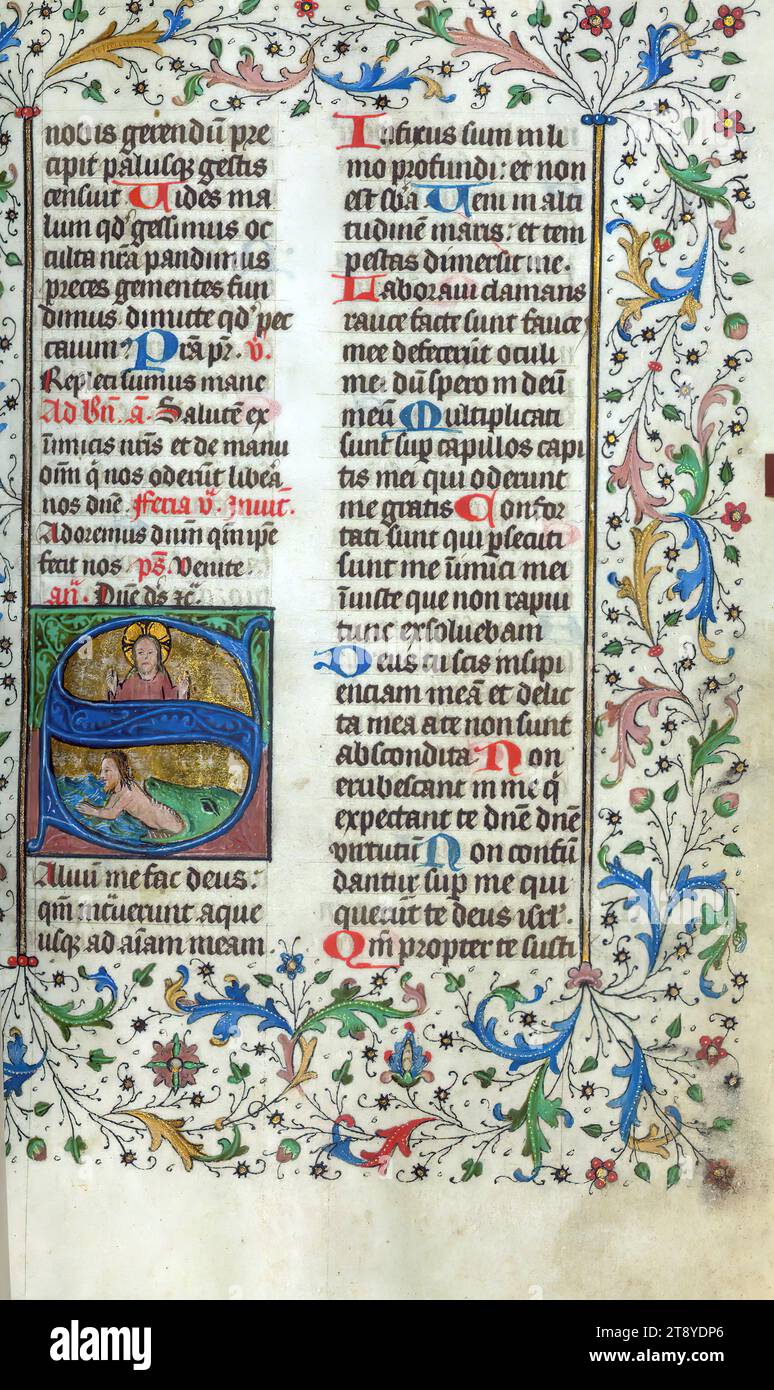 nobis gerendū pre
cipit palusqꝫ gestis
censuit Vides ma
lum qd' gessimus oc
culta nrā pandimus
preces gementes fun
dimus dimitte qd' pec
cauimꝰ Prā pr̄. v̄.
Repleti sumus mane
Ad bn̄. ā. Salutē ex
inimicis nrīs et de manu
oīm q̄ nos oderūt libēa
nos dn̄e Feria v̄. Inuit̄.
Adoremus dnūm qm̄ ipse
fecit nos ps̄. Venite
an̄. Dn̄e ds̄ zc̄.
Saluū me fac deus:
qm̄ intᷓuerunt aque
usqꝫ ad aīam meam
Infixus sum in li
mo profundi: et non
est sb̄a Veni in alti
tudinē maris: et tem
pestas dimersit me.
Laboraui clamans
rauce facte sunt fauce
mee defecerūt oculi
mei dū spero in deū
meū Multiplicati
sunt suꝑ capillos capi
tis mei qui oderunt
me gratis Confor
tati sunt qui ꝑsecuti
sunt me inimici mei
iniuste que non rapui
tunc exsoluebam
Deus tu scis insipi
enciam meā et delic
ta mea a te non sunt
abscondita Non
erubescant in me q̄
expectant te dn̄e dn̄e
virtutū Non confū
dantur suꝑ me qui
querūt te deus isrl̄.
Qm̄ propter te susti
alamy
Image ID: 2T8YDP6
www.alamy.com